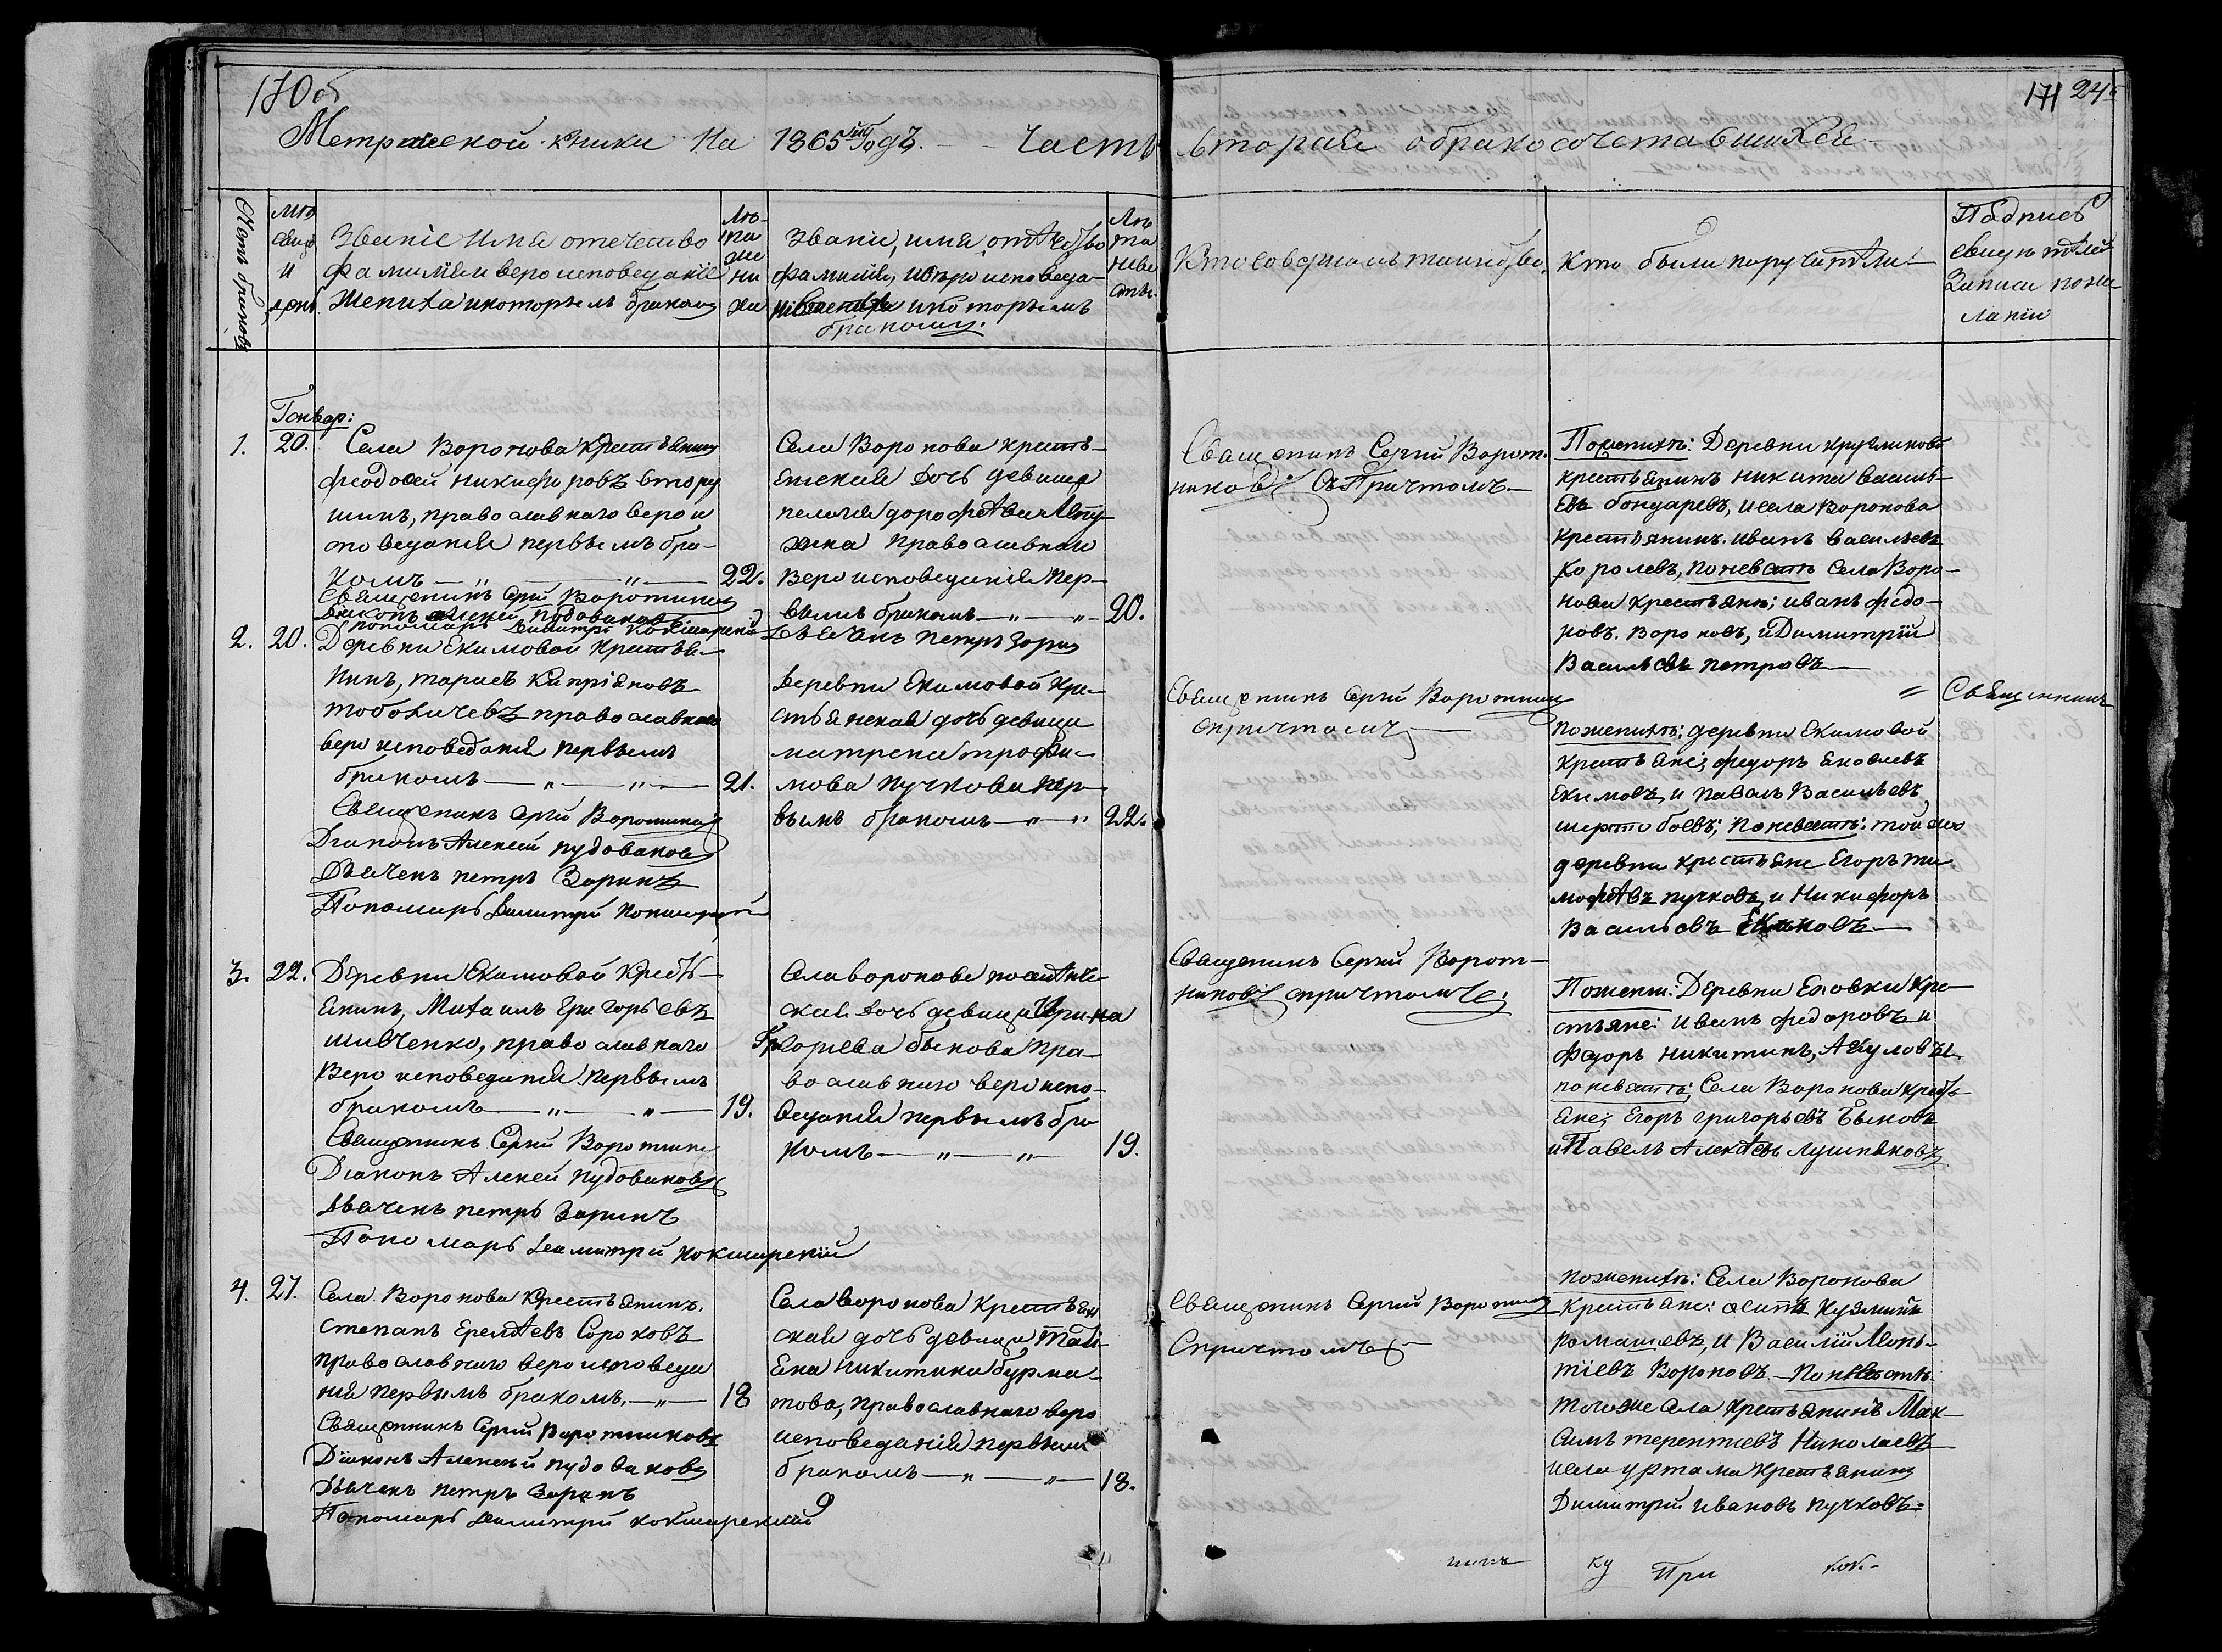 170 об
171 24
Метрической книги На 1865й годъ. Часть вторая о бракосочетавшихся
Счетъ браковъ
Мѣ
сяцъ
и
день
Званіе Имя отечество
фамилія и вероисповеданіе
жениха и которымъ бракомъ
Лѣ-
та
же
ни
ха
Званіе, имя, отечество
фамилія, и вѣроисповеда-
ніе невесты и которымъ
бракомъ.
Лѣ
та
неве
сты.
Кто совершалъ таинство.
Кто были поручители
Подпись
свидѣтелей
Записи по же
ланію
Генвар:
1. 20. Села Воронова Крестьянинъ
Феодосей Никифоровъ втору
шинъ, православнаго верои
споведанія первымъ бра-
комъ 22.
Священикъ Сергій Воротникъ
Диаконъ Алексей Пудовиковъ
пономарь Димитрій Кокшарскій
Дьячекъ Петръ Зоринъ
Села Воронова кресть-
янская дочь девица
пелагея дорофѣева
православнаго
вероисповеданія пер-
вымъ бракомъ 20.
Священикъ Сергій Ворот-
никовъ Съ Причтомъ
По женихѣ: Деревни Кругликовой
крестьянинъ Никита василь-
евъ бондаревъ, и села Воронова
крестьянинъ иванъ васильевъ
королевъ, по невестѣ Села Воро-
нова крестьяне; иванъ федо-
ровъ. Вороновъ, и Димитрій
Васильевъ петровъ
2. 20. Деревни Екимовой Крестья-
нинъ, тарасъ Кипріяновъ
тоболичевъ православнаго
вероисповеданія первымъ
бракомъ 21.
Священикъ Сергій Воротникъ
Диаконъ Алексей пудовиковъ
Дьячекъ петръ Заринъ
Пономарь Димитрій Кокшарскій
Деревни Екимовой Кре-
стьянская дочь девица
матрена трофи-
мова пучкова пер-
вымъ бракомъ 22.
Священикъ Сергій Воротникъ
спричтомъ
Священикъ
по женихѣ: деревни Екимовой
крестьяне; федоръ Яковлевъ
Екимовъ, и Павелъ Васильевъ
шертобоевъ; по невестѣ: той же
деревни крестьяне Егоръ ти
мофѣевъ пучковъ, и Никифоръ
Васильевъ
3. 22. Деревни Екимовой Кресть-
янинъ, Михаилъ Григорьевъ
шивченко, православнаго
вероисповеданія первымъ
бракомъ 19.
Священикъ Сергій Воротник
Диаконъ Алексей пудовиковъ
Дьячекъ петръ Заринъ
Пономарь Димитрій Кокшарскій
Села воронова
ская дочь девица Ирина
Григорьева быкова Пра-
вославнаго вероиспо-
веданія первымъ бра
комъ 19.
Священикъ Сергій Ворот-
никовъ спричтомъ
По жених: Деревни Еловки Кре-
стьяне: Иванъ федоровъ и
федоръ никитинъ, Акуловы.
по невестѣ; Села Воронова кресть-
яне; Егоръ григорьевъ Быковъ
и Павелъ Алексѣевъ Лушниковъ
4. 27. Села Воронова Крестьянинъ,
степанъ Еремѣевъ Сороковъ
православнаго вероисповеда
нія первымъ бракомъ, 18
Священникъ Сергій Воротниковъ
Діаконъ Алексей пудовиковъ
Дьячекъ петръ Заринъ
Пономарь Димитрій Кокшарскій
Села воронова Крестьян
ская дочь девица Тать-
яна Никитина бурма-
това, православнаго веро
исповеданія первымъ
бракомъ 18.
Священикъ Сергій Воротник
Спричтомъ
по женихѣ: Села Воронова
крестьяне: осипъ Кузминъ
ромашевъ, и Василій Леонь-
тіевъ Вороновъ По невестѣ
того же села крестьянинъ Мак-
симъ терентиевъ Николаевъ
и села уртама Крестьянинъ
Димитрій ивановъ пучковъ
При